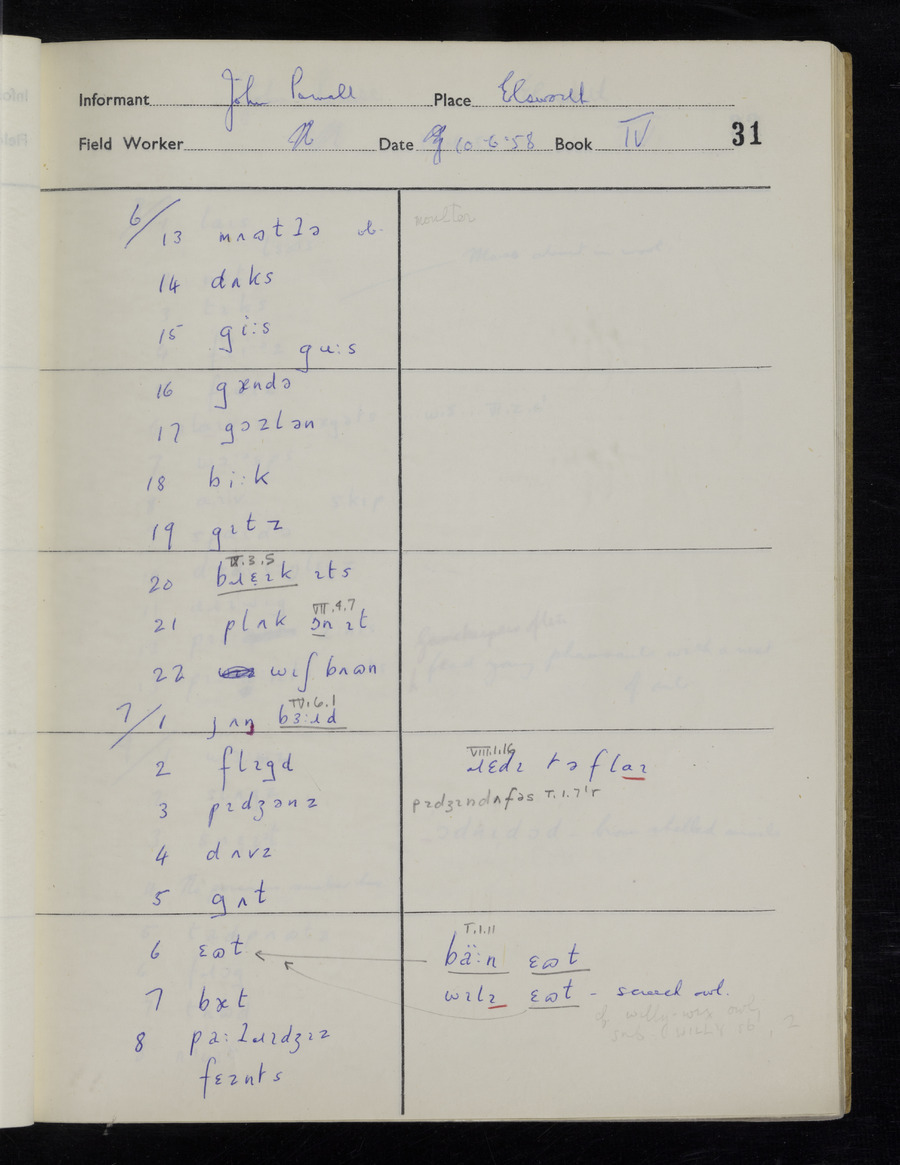 Informant John Place Elsworth
Field Worker Date 10-6-58 Book IV 31
6/13 mʌɷtɪə ob.
moulter
14 dʌks
15 gi:s
gu:s
16 gændə
17 gɔzlən
18 bi:k
19 gɪtz
IX.3.5
20 bɹɛɪk ɪts
VII.4.7
21 plʌk ɔn ɪt
22 wɪʃbʌɷn
IV.6.1
7/1 jʌŋ bɜ:ɹd
2 flɪgd
VIII.1.16
ɹɛdɪ tə flaɪ
3 pɪdʒənz
pɪdʒɪndʌfəs T.1.7'r
4 dʌvz
5 gʌt
T.1.11
6 ɛɷt
bä:n ɛɷt
7 bæt
wɪlɪ ɛɷt - screech owl.
cf willy-wix owl
8 pa:ʇɹɪdʒɪz
fɛznts